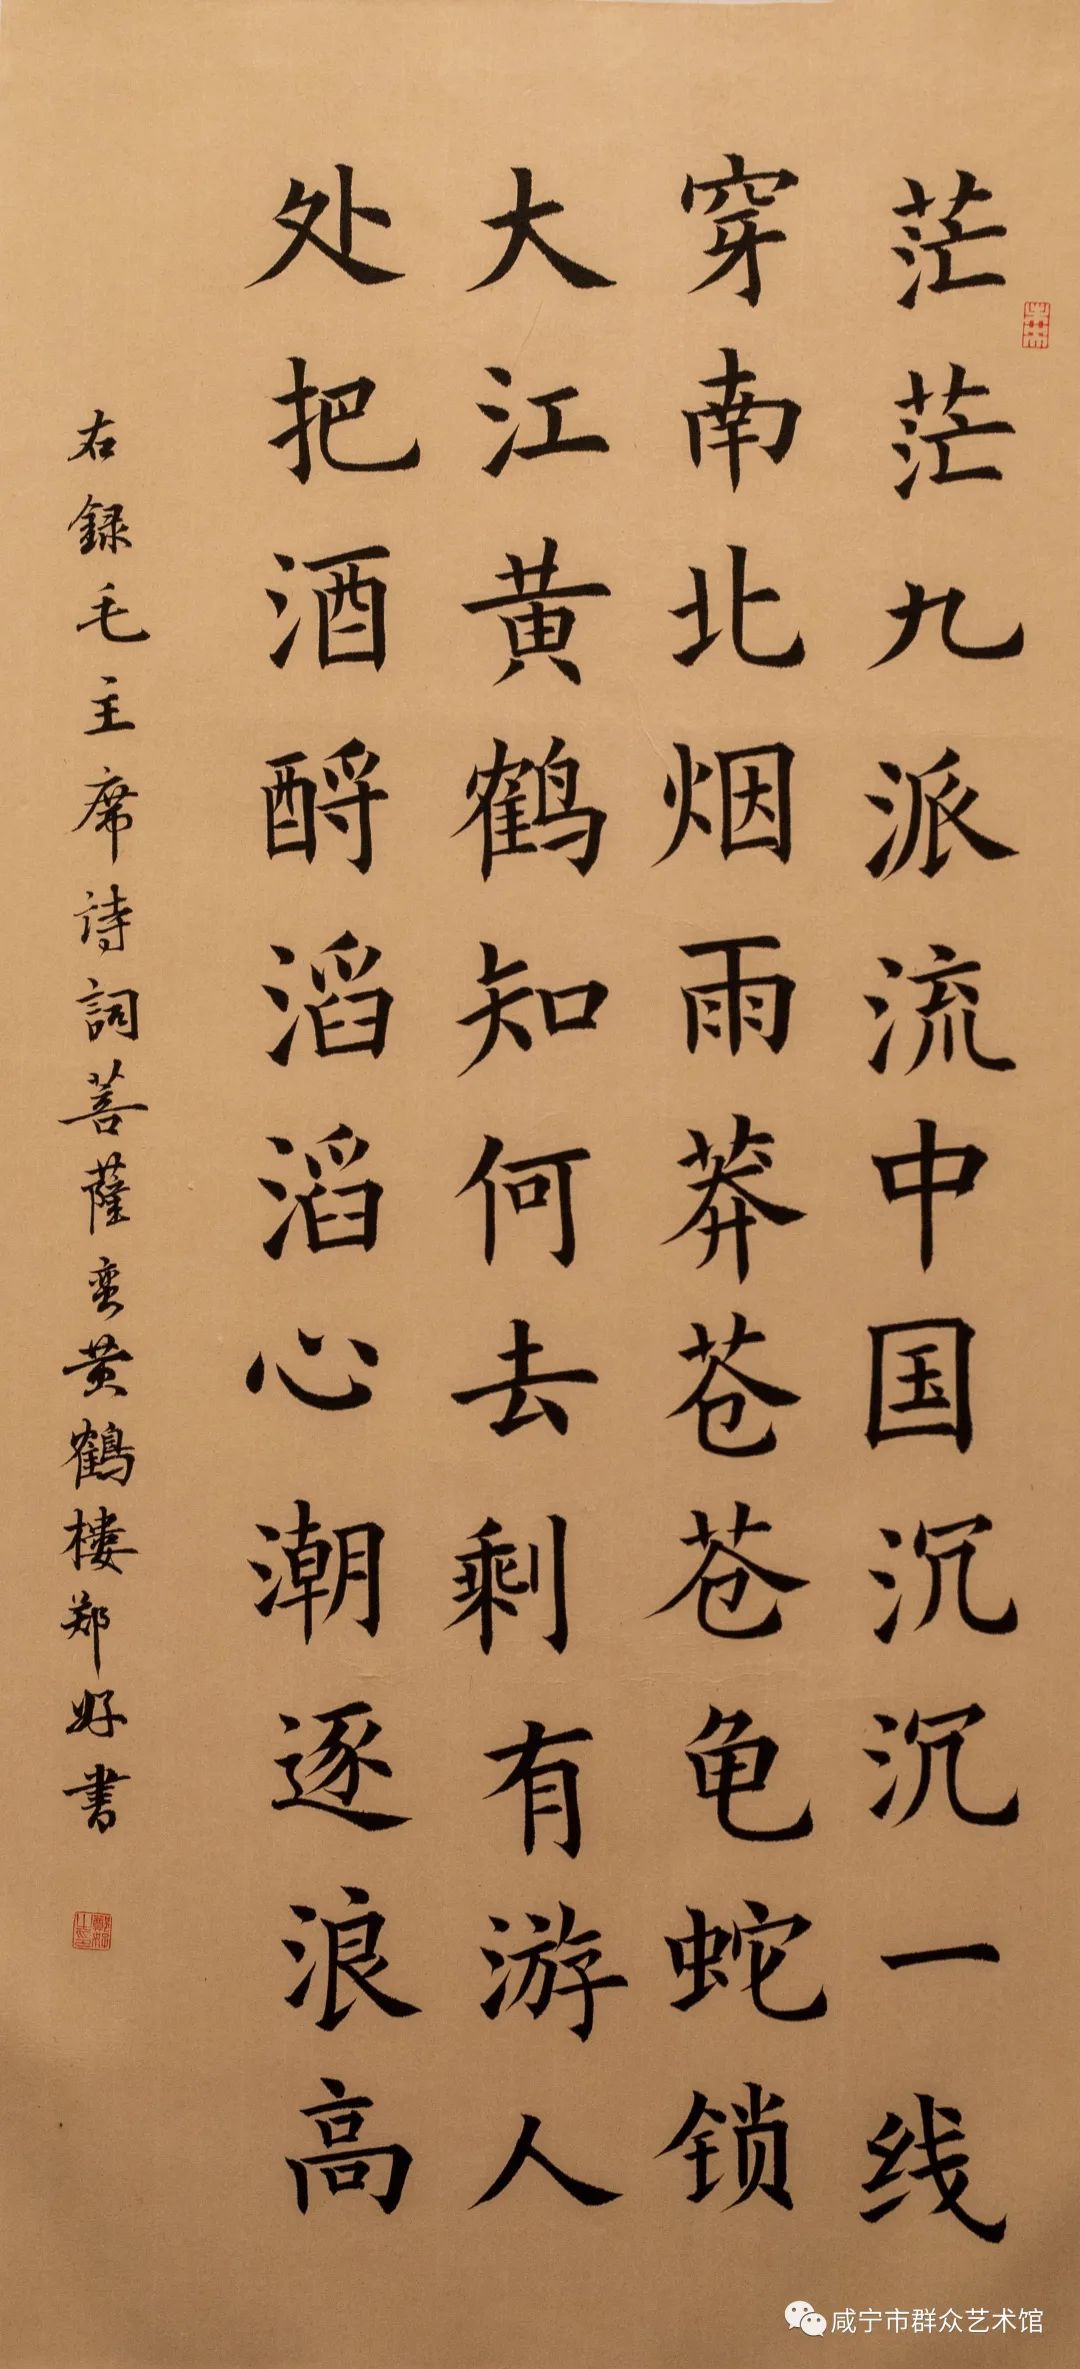 茫茫九派流中国沉沉一线
穿南北烟雨莽苍苍龟蛇锁
大江黄鹤知何去剩有游人
处把酒酹滔滔心潮逐浪高
右録毛主席詩詞菩薩蛮黄鶴楼郑好書
咸宁市群众艺术馆